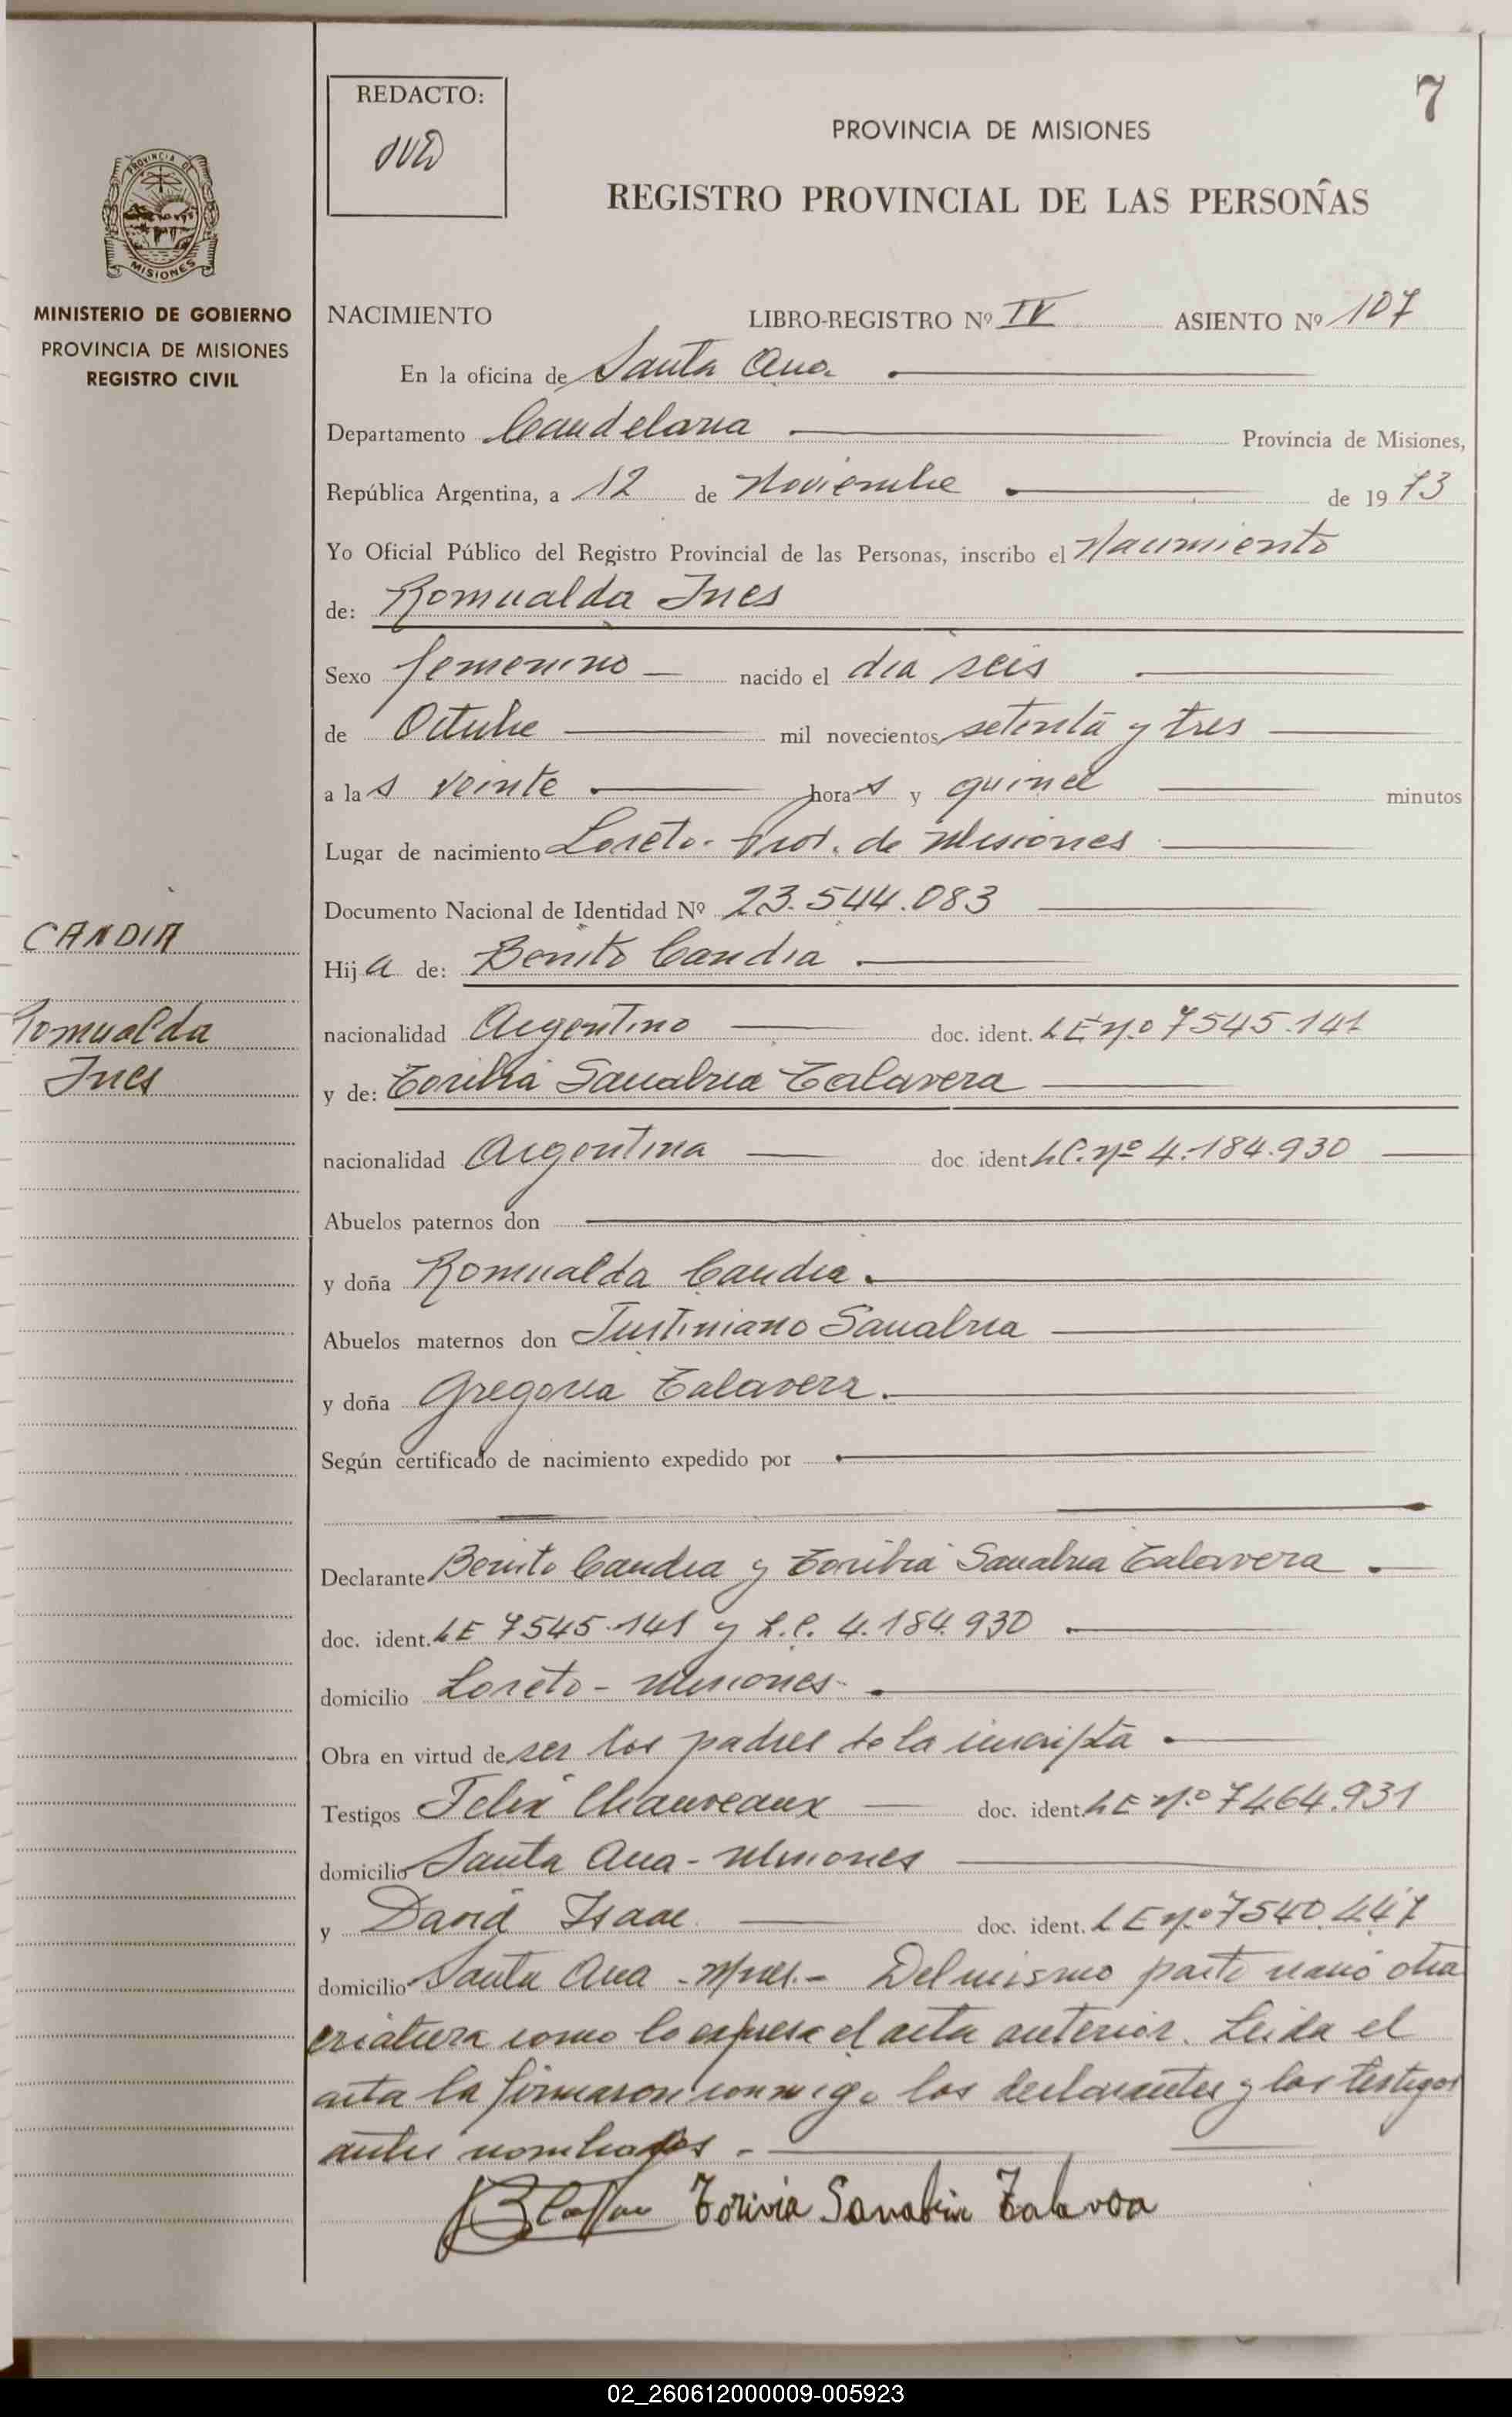 7
REDACTO:
PROVINCIA DE MISIONES
REGISTRO PROVINCIAL DE LAS PERSONAS
PROVINCIA DE
MISIONES
MINISTERIO DE GOBIERNO
PROVINCIA DE MISIONES
REGISTRO CIVIL
NACIMIENTO LIBRO-REGISTRO Nº IV ASIENTO Nº 107
En la oficina de Santa Ana
Departamento Candelaria Provincia de Misiones,
República Argentina, a 12 de Noviembre de 1973
Yo Oficial Público del Registro Provincial de las Personas, inscribo el Nacimiento
de: Romualda Ines
Sexo femenino nacido el dia seis
de Octubre mil novecientos setenta y tres
a las veinte horas y quince minutos
Lugar de nacimiento Loreto - Prov. de Misiones
Documento Nacional de Identidad Nº 23.544.083
CANDIA
Romualda
Ines
Hija de: Benito Candia
nacionalidad Argentino doc. ident. LE nº 7545.141
y de: Toribia Sanabria Talavera
nacionalidad Argentina doc. ident. LC. nº 4.184.930
Abuelos paternos don
y doña Romualda Candia.
Abuelos maternos don Justiniano Sanabria
y doña Gregoria Talavera.
Según certificado de nacimiento expedido por
Declarante Benito Candia y Toribia Sanabria Talavera
doc. ident. LE 7545.141 y L.C. 4.184.930
domicilio Loreto - Misiones.
Obra en virtud de ser los padres de la inscripta
Testigos Felix Chauveaux doc. ident. LE nº 7464.931
domicilio Santa Ana - Misiones
y David Isaac doc. ident. LE nº 7540.447
domicilio Santa Ana - Mnes. - Del mismo parto nació otra
criatura como lo expresa el acta anterior. Leida el
acta la firmaron conmigo los declarantes y los testigos
antes nombrados.-
Torivia Sanabria Talavera
02_260612000009-005923